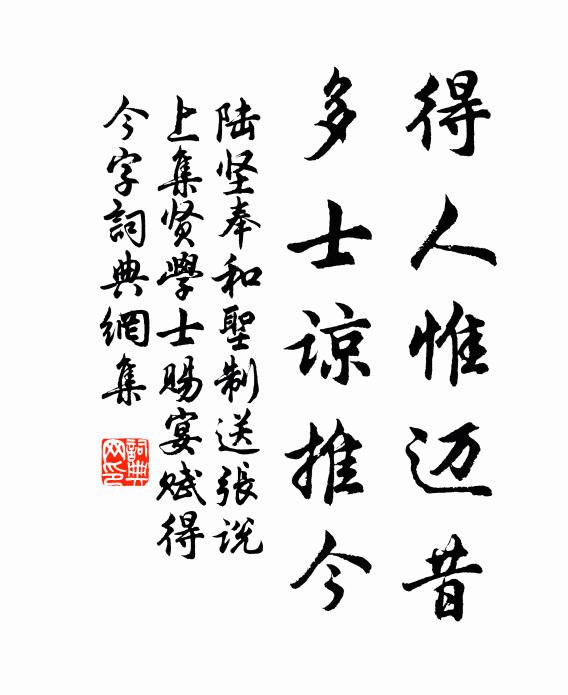 得人惟迈昔
多士谅推今
陆坚奉和聖制送張说
上集贤學士賜宴赋得
今字詞典網集
詞典
网印